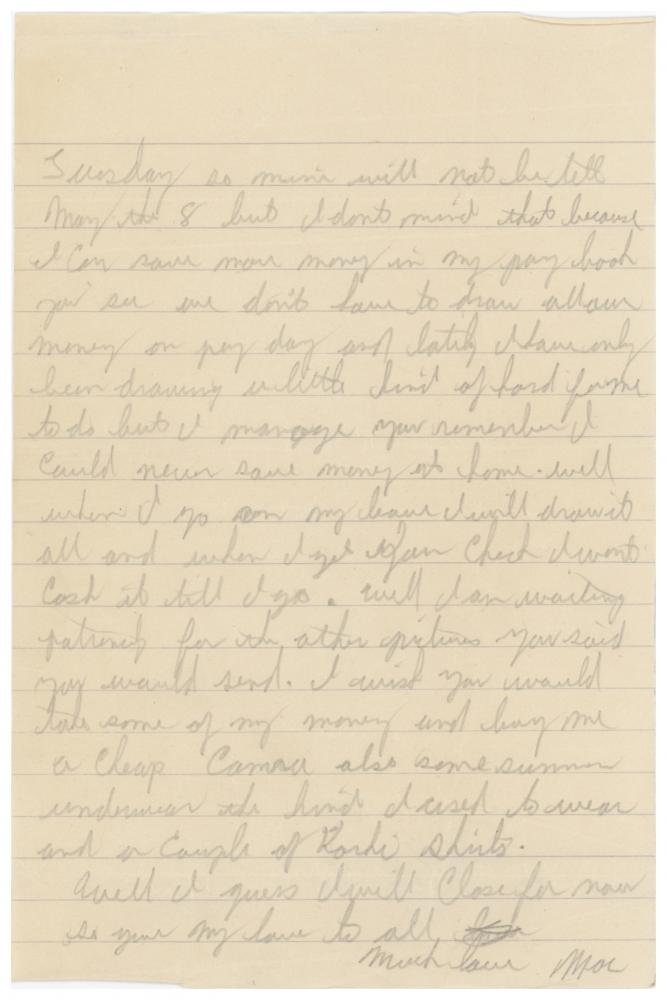 Tuesday so mine will not be till
May the 8 but I dont mind that because
I Can save more money in my pay book
you see we don't have to draw all our
money on pay day and lately I have only
been drawing a little kind of hard for me
to do but I manage you remember I
Could never save money at home. well
when I go on my leave I will draw it
all and when I get your Check I wont
Cash it till I go. well I am waiting
for the other pictures you said
you would send. I wish you would
take some of my money and buy me
a Cheap Camera also some summer
underwear the kind I used to wear
and a Couple of Kacki shirts.
Well I guess I will Close for now
so give my love to all
Much love Mac